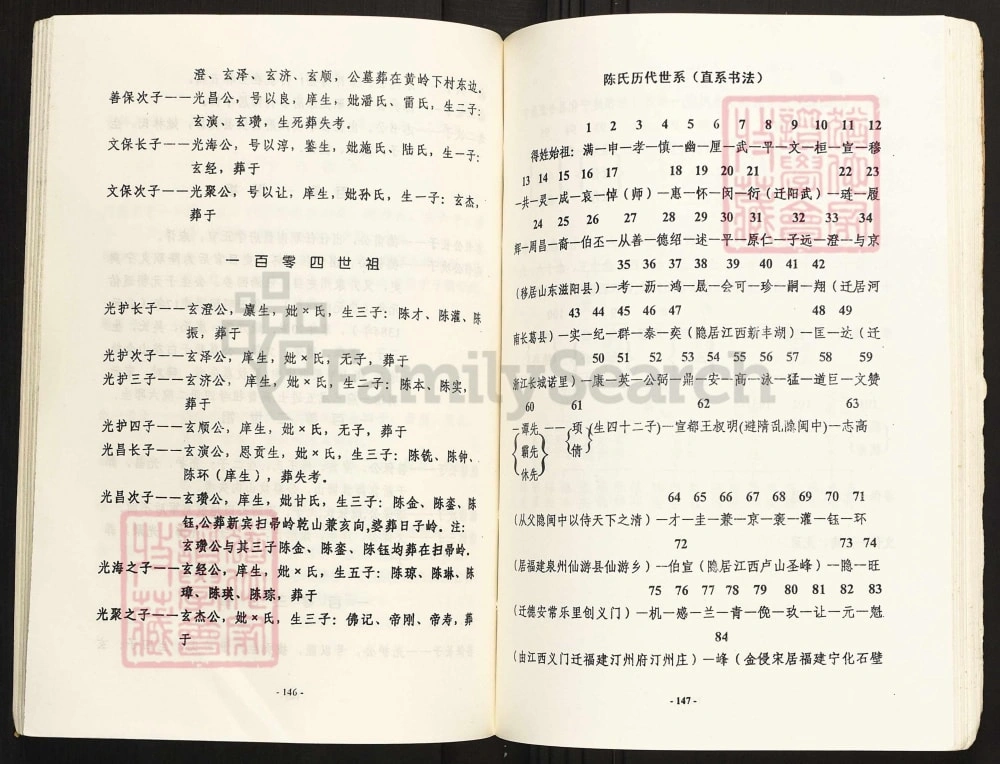 澄、玄泽、玄济、玄顺，公墓葬在黄岭下村东边。
善保次子——光昌公，号以良，庠生，妣潘氏、雷氏，生二子：
玄演、玄瓒，生死葬失考。
文保长子——光海公，号以淳，鉴生，妣施氏、陆氏，生一子：
玄经，葬于
文保次子——光聚公，号以让，庠生，妣孙氏，生一子：玄杰，
葬于
一百零四世祖
光护长子——玄澄公，廪生，妣×氏，生三子：陈才、陈灌、陈
振，葬于
光护次子——玄泽公，庠生，妣×氏，无子，葬于
光护三子——玄济公，庠生，妣×氏，生二子：陈本、陈实，
葬于
光护四子——玄顺公，庠生，妣×氏，无子，葬于
光昌长子——玄演公，恩贡生，妣×氏，生三子：陈铣、陈钟、
陈环（庠生），葬失考。
光昌次子——玄瓒公，庠生，妣甘氏，生三子：陈金、陈銮、陈
钰,公葬新宾扫帚岭乾山兼玄向,婆葬日子岭。注：
玄瓒公与其三子陈金、陈銮、陈钰均葬在扫帚岭.
光海之子——玄经公，庠生，妣×氏，生五子：陈琼、陈琳、陈
璋、陈瑛、陈琮，葬于
光聚之子——玄杰公，妣×氏，生三子：佛记、帝刚、帝寿，葬
于
- 146 -
陈氏历代世系（直系书法）
1 2 3 4 5 6 7 8 9 10 11 12
得姓始祖：满—申—孝—慎—幽—厘—武—平—文—桓—宣—穆
13 14 15 16 17 18 19 20 21 22 23
—共—灵—成—哀—悼（师）—惠—怀—闵—衍（迁阳武）—琏—履
24 25 26 27 28 29 30 31 32 33 34
辉—周昌—裔—伯丕—从善—德绍—述—平—原仁—子远—澄—与京
35 36 37 38 39 40 41 42
（移居山东滋阳县）—考—沥—鸿—晟—会可—珍—嗣—翔（迁居河
43 44 45 46 47 48 49
南长葛县）—实—纪—群—泰—奕（隐居江西新丰湖）—匡—达（迁
50 51 52 53 54 55 56 57 58 59
浙江长城诺里）—康—英—公弼—鼎—安—高—泳—猛—道巨—文赞
60 61 62 63
—谭先 —— 顼 (生四十二子)—宣都王叔明(避隋乱隐闽中)—志高
霸先 倩
休先
64 65 66 67 68 69 70 71
(从父隐闽中以侍天下之清）—才—圭—兼—京—褒—灌—钰—环
72 73 74
(居福建泉州仙游县仙游乡）—伯宣（隐居江西卢山圣峰）—隐—旺
75 76 77 78 79 80 81 82 83
(迁德安常乐里创义门）—机—感—兰—青—俛—玖—让—元—魁
84
(由江西义门迁福建汀州府汀州庄）—峰（金侵宋居福建宁化石壁
- 147 -
FamilySearch